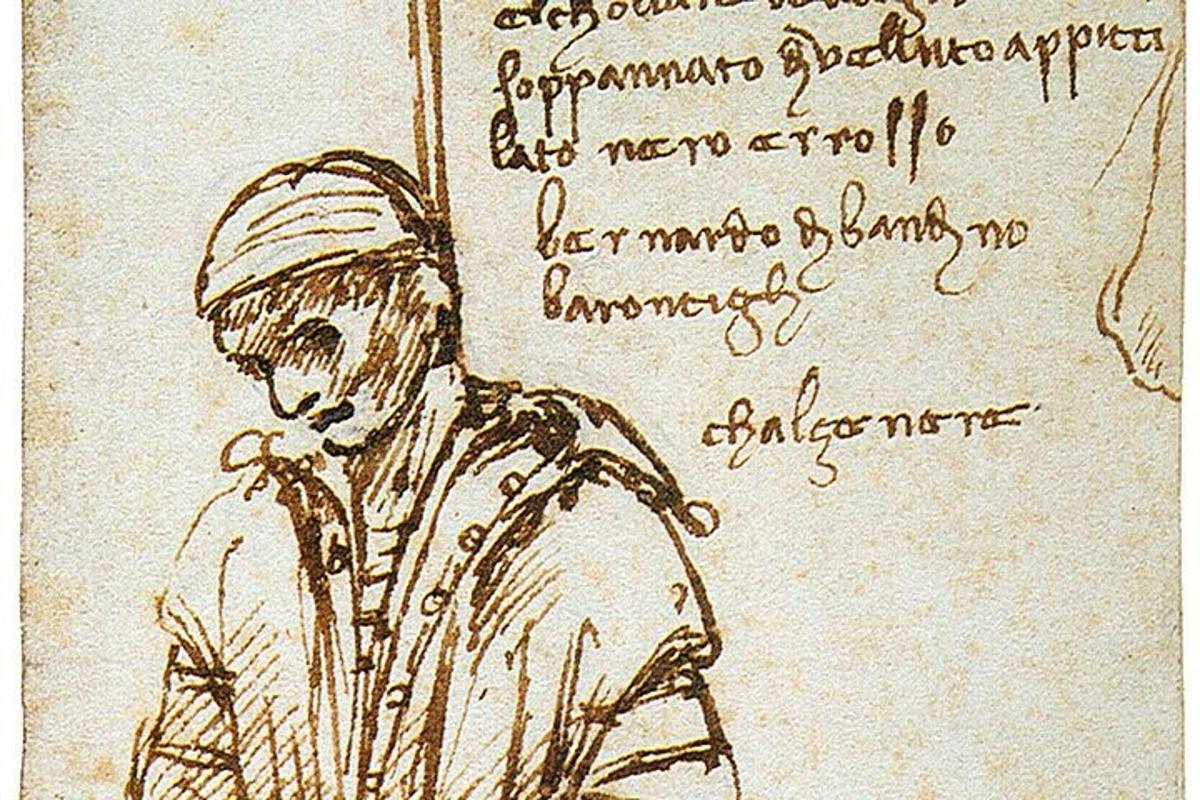 soppannato di velluto appicci
lato nero e rrosso
bernardo di bandino
barontigli
chalze nere